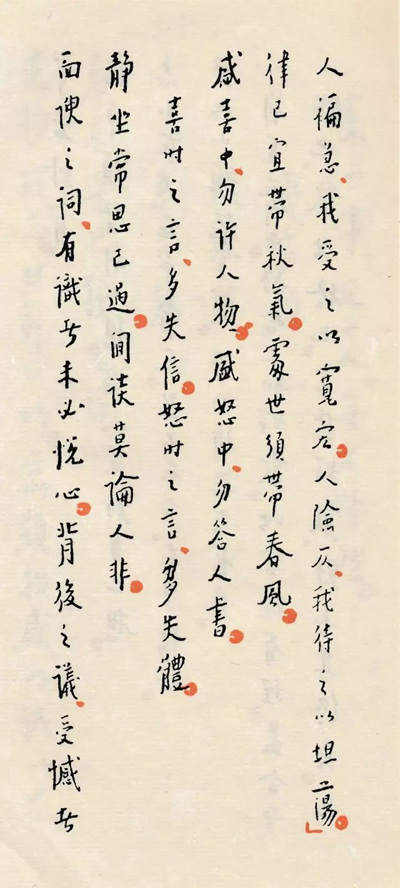 人褊急、我受之以寬宏。人險仄、我待之以坦蕩。」
律己宜帶秋氣。處世須帶春風。
盛喜中、勿許人物。盛怒中、勿答人書。
喜时之言、多失信。怒时之言、多失體。
静坐常思己過。間談莫論人非。
面諛之詞、有識者未必悅心。背後之議、受憾者